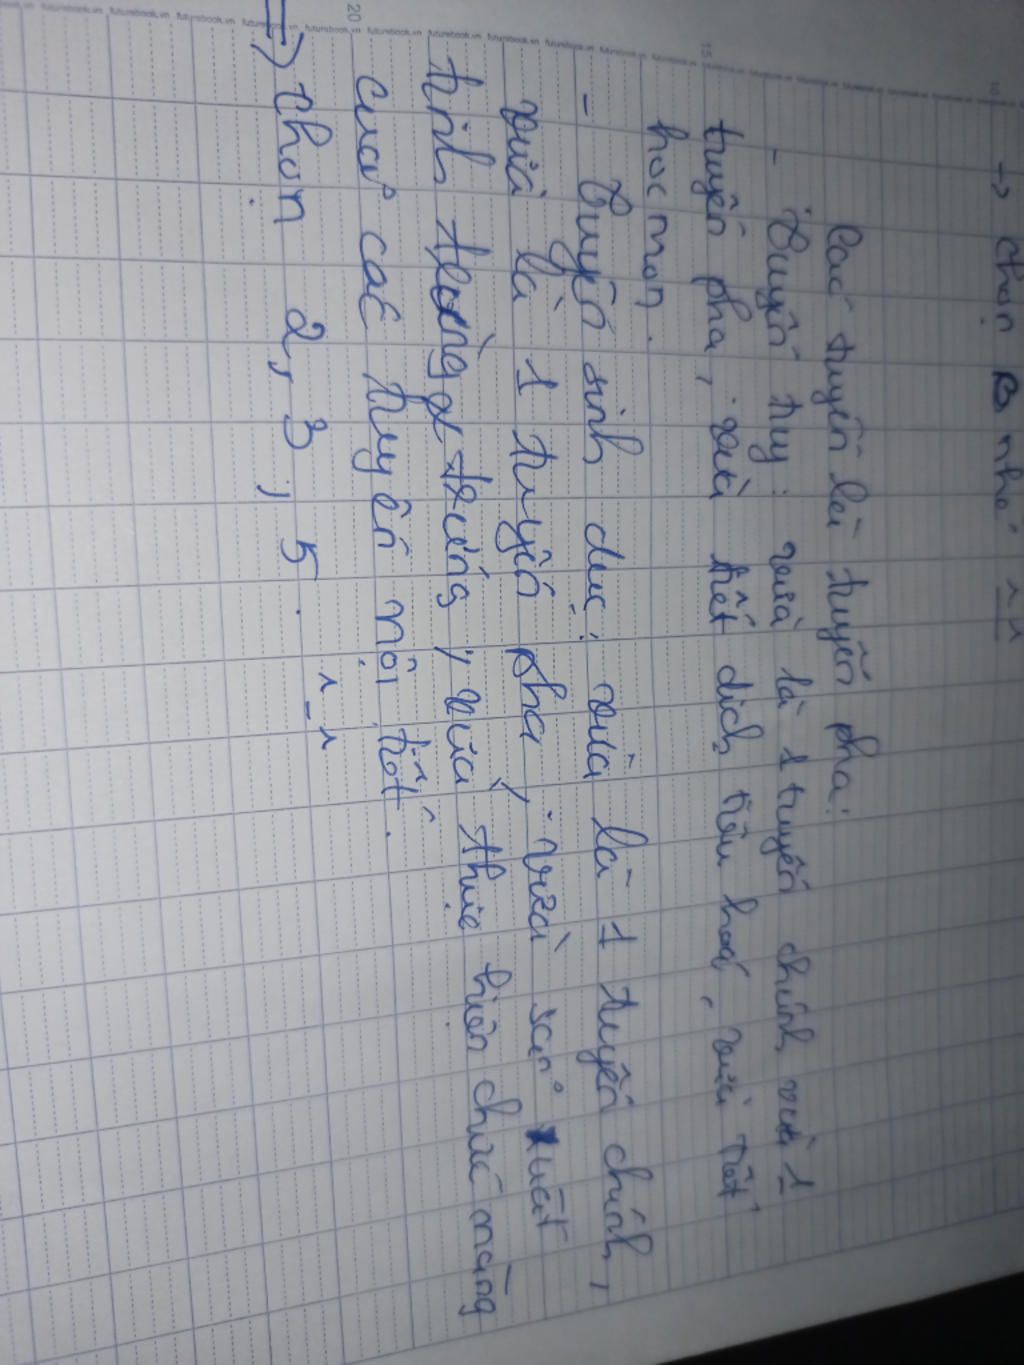 → chọn B nhé ^_^
Các tuyến là tuyến pha:
- Tuyến tụy: vừa là 1 tuyến chính, vừa 1
tuyến pha, vừa tiết dịch tiêu hoá, vừa tiết
hoocmon.
- Tuyến sinh dục: vừa là 1 tuyến chính,
vừa là 1 tuyến pha, vừa sản xuất
tinh trùng & trứng, vừa thực hiện chức năng
của các tuyến nội tiết.
=> chọn 2, 3, 5. ^_^
15
20
futurebook.vn